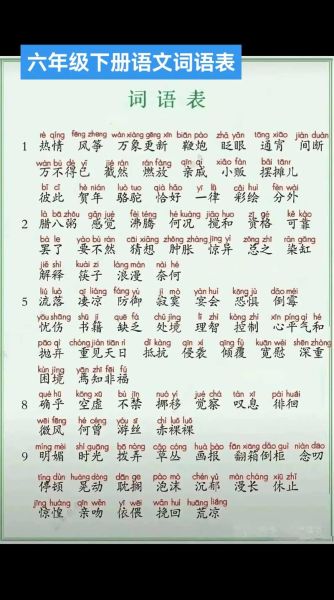 六年级下册语文词语表
词语表
rè qíng fēng zheng wàn xiàng gēng xīn biān pào zhǎ yǎn tōng xiāo jiàn duàn
1 热情 风筝 万象更新 鞭炮 眨眼 通宵 间断
wàn bù dé yǐ jié rán rán fàng qīn qi xiǎo fàn bǎi tānr
万不得已 截然 燃放 亲戚 小贩 摆摊儿
bǐ cǐ hè nián luò tuo qià hǎo yī lǜ cǎi huì fèn wài
彼此 贺年 骆驼 恰好 一律 彩绘 分外
là bā zhōu gǎn jué fèi téng hé kuàng jiǎo huo zī gé kě kào
2 腊八粥 感觉 沸腾 何况 搅和 资格 可靠
bà le yào bù rán cāi xiǎng zhǒng zhàng jīng yì zǒng zhī rǎn gāng
罢了 要不然 猜想 肿胀 惊异 总之 染缸
jiě shì kuài zi làng màn nài hé
解释 筷子 浪漫 奈何
liú luò qī liáng fáng yù jì mò yàn huì kǒng jù dǎo méi
5 流落 凄凉 防御 寂寞 宴会 恐惧 倒霉
yōu shāng shū jí quē fá chǔ jìng lǐ zhì kòng zhì xīn píng qì hé
忧伤 书籍 缺乏 处境 理智 控制 心平气和
pāo qì chóng jiàn tiān rì dǐ kàng qīn xí qīng fù kuān wèi shēn zhòng
抛弃 重见天日 抵抗 侵袭 倾覆 宽慰 深重
kùn jìng yān zhī fēi fú
困境 焉知非福
què hū kōng xū bù jīn nuó yí jué chá tàn xī pái huái
8 确乎 空虚 不禁 挪移 觉察 叹息 徘徊
wēi fēng hé céng yóu sī chì luǒ luǒ
微风 何曾 游丝 赤裸裸
míng mèi shí guāng bō nòng cǎo cóng huà bào fān xiāng dǎo guì niàn dao
9 明媚 时光 拨弄 草丛 画报 翻箱倒柜 念叨
tíng dùn huàng dòng dān ge pào mò chén yù màn cháng xiū zhǐ
停顿 晃动 耽搁 泡沫 沉郁 漫长 休止
jīng huáng qīn wěn yī wēi wǎn huí huāng liáng
惊惶 亲吻 依偎 挽回 荒凉